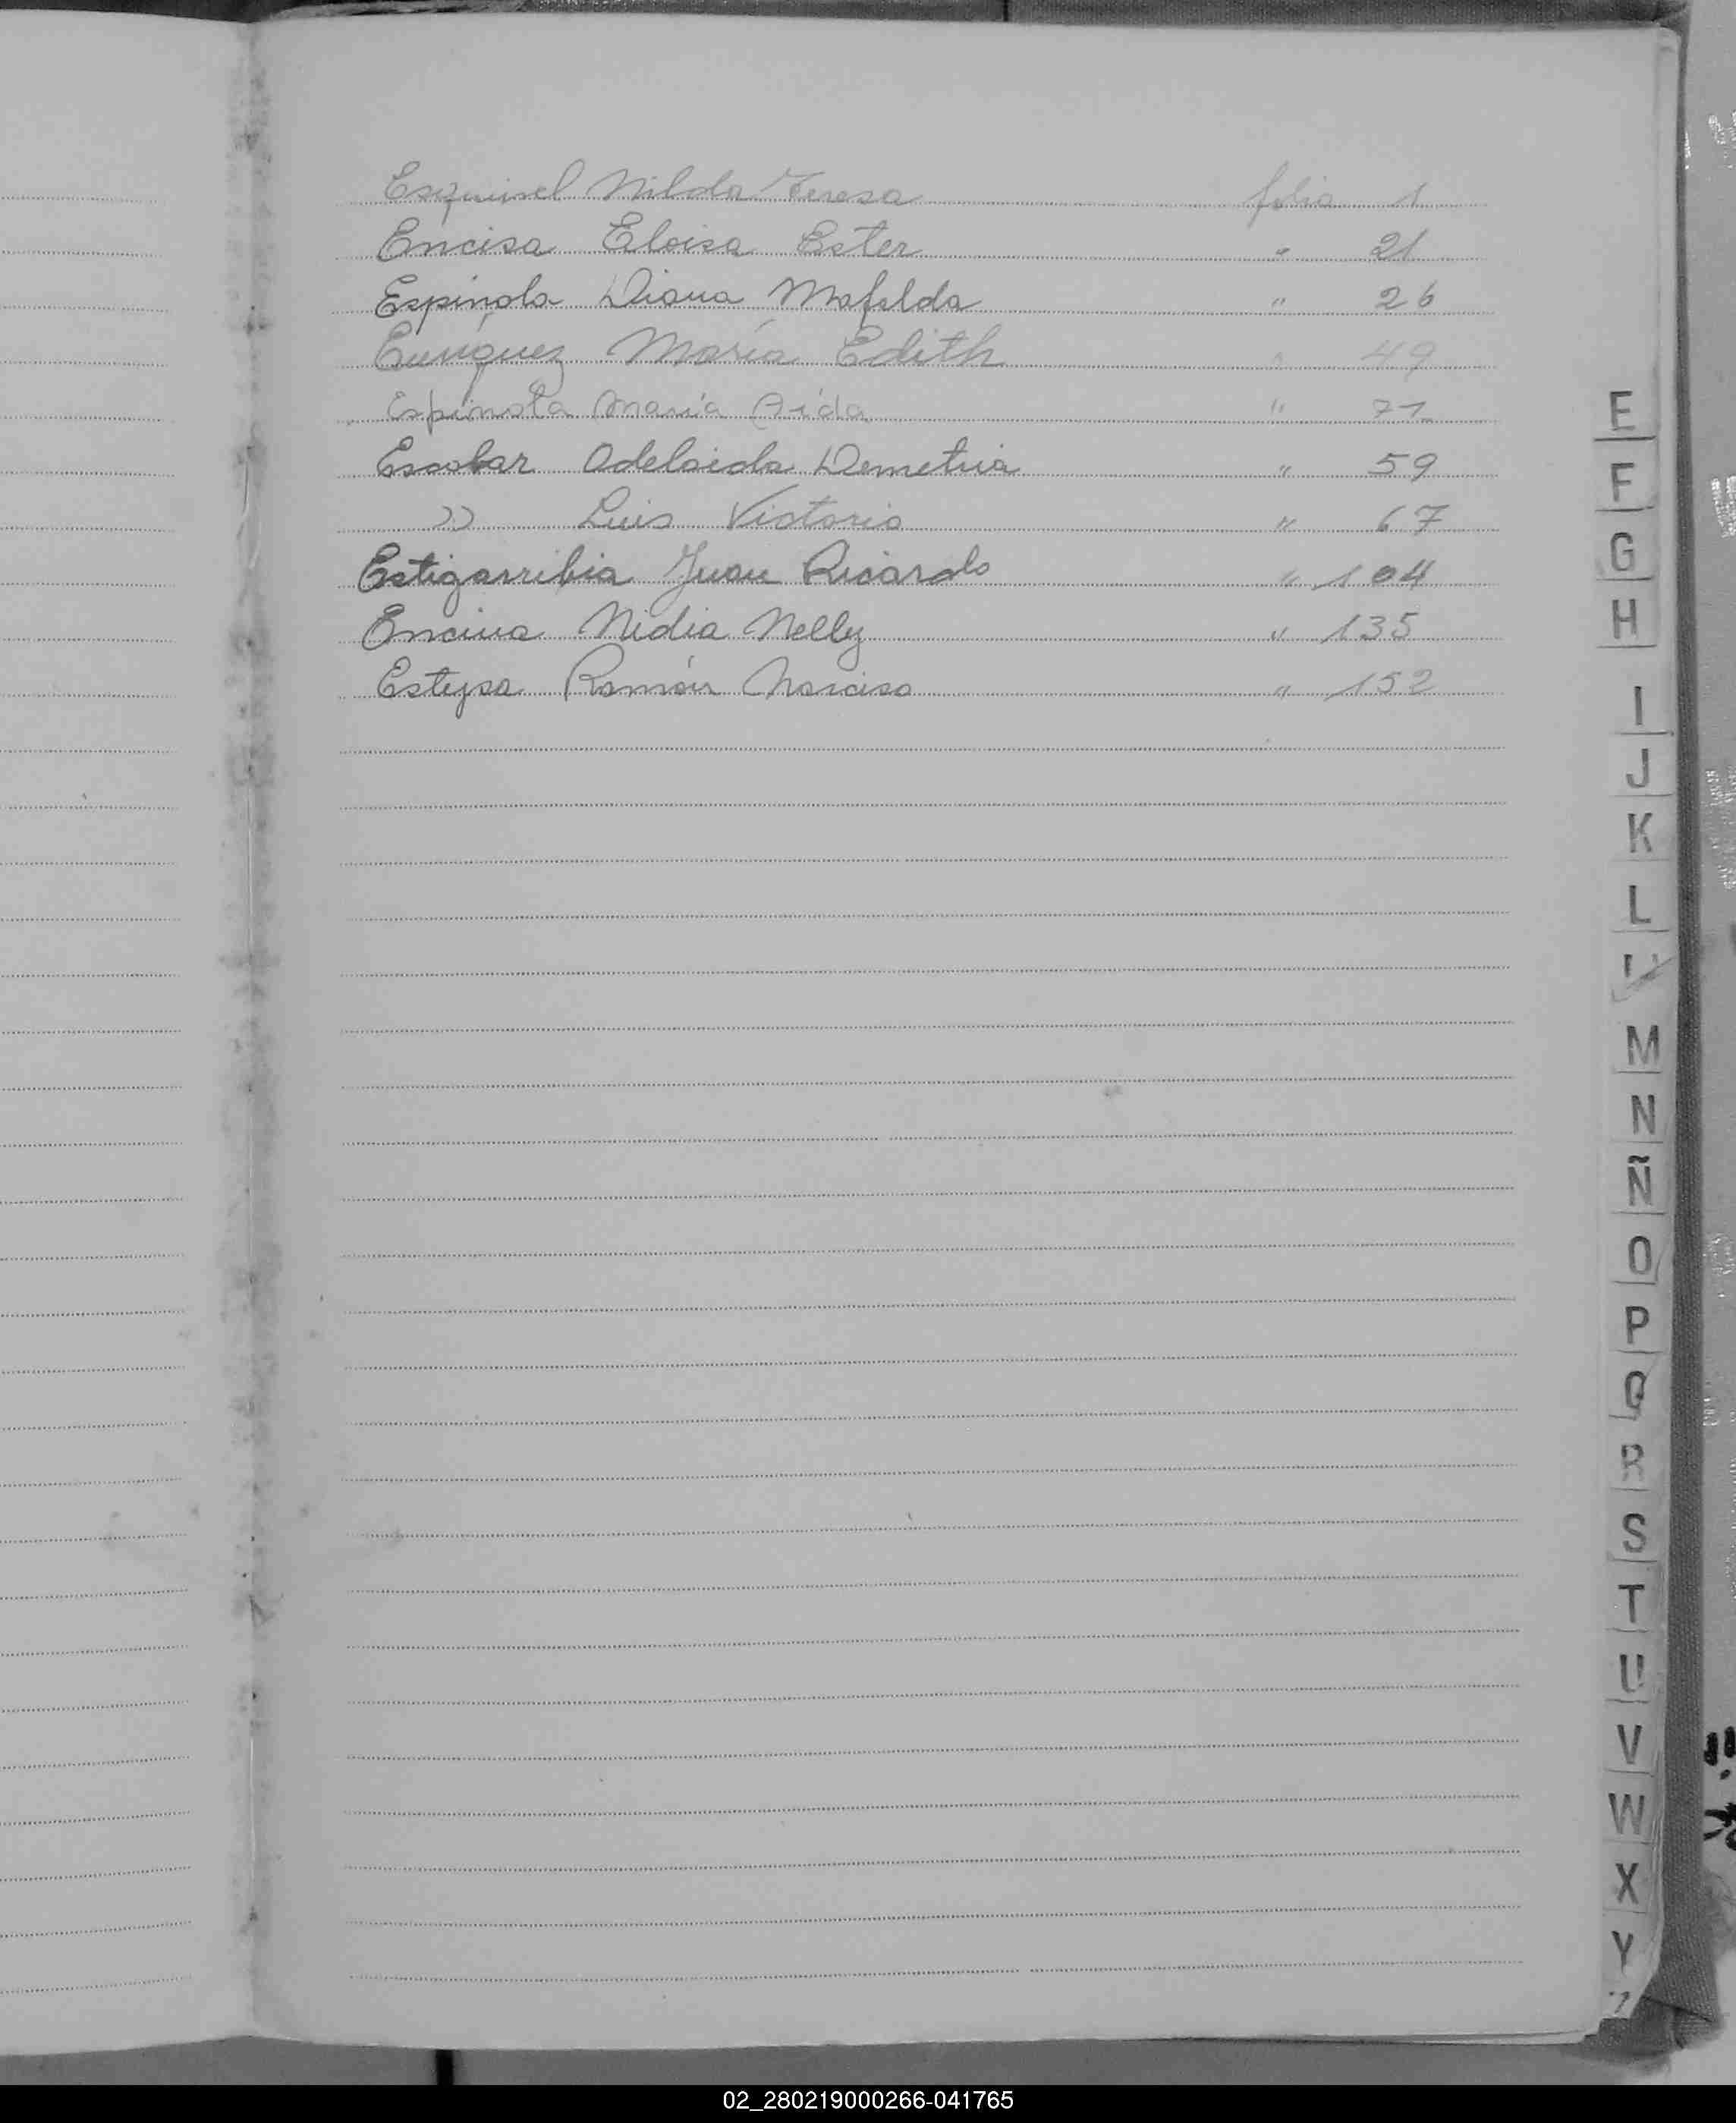 Esquivel Nilda Teresa folio 1
Encisa Eloisa Ester " 21
Espínola Diana Mafalda " 26
Enríquez María Edith " 49
Espinola María Aída " 71
Escobar Adelaida Demetria " 59
" Luis Victorio " 67
Estigarribia Juan Ricardo " 104
Encina Nidia Nelly " 135
Ramón Narciso " 152
E
F
G
H
I
J
K
L
M
N
Ñ
O
P
Q
R
S
T
U
V
W
X
Y
02_280219000266-041765